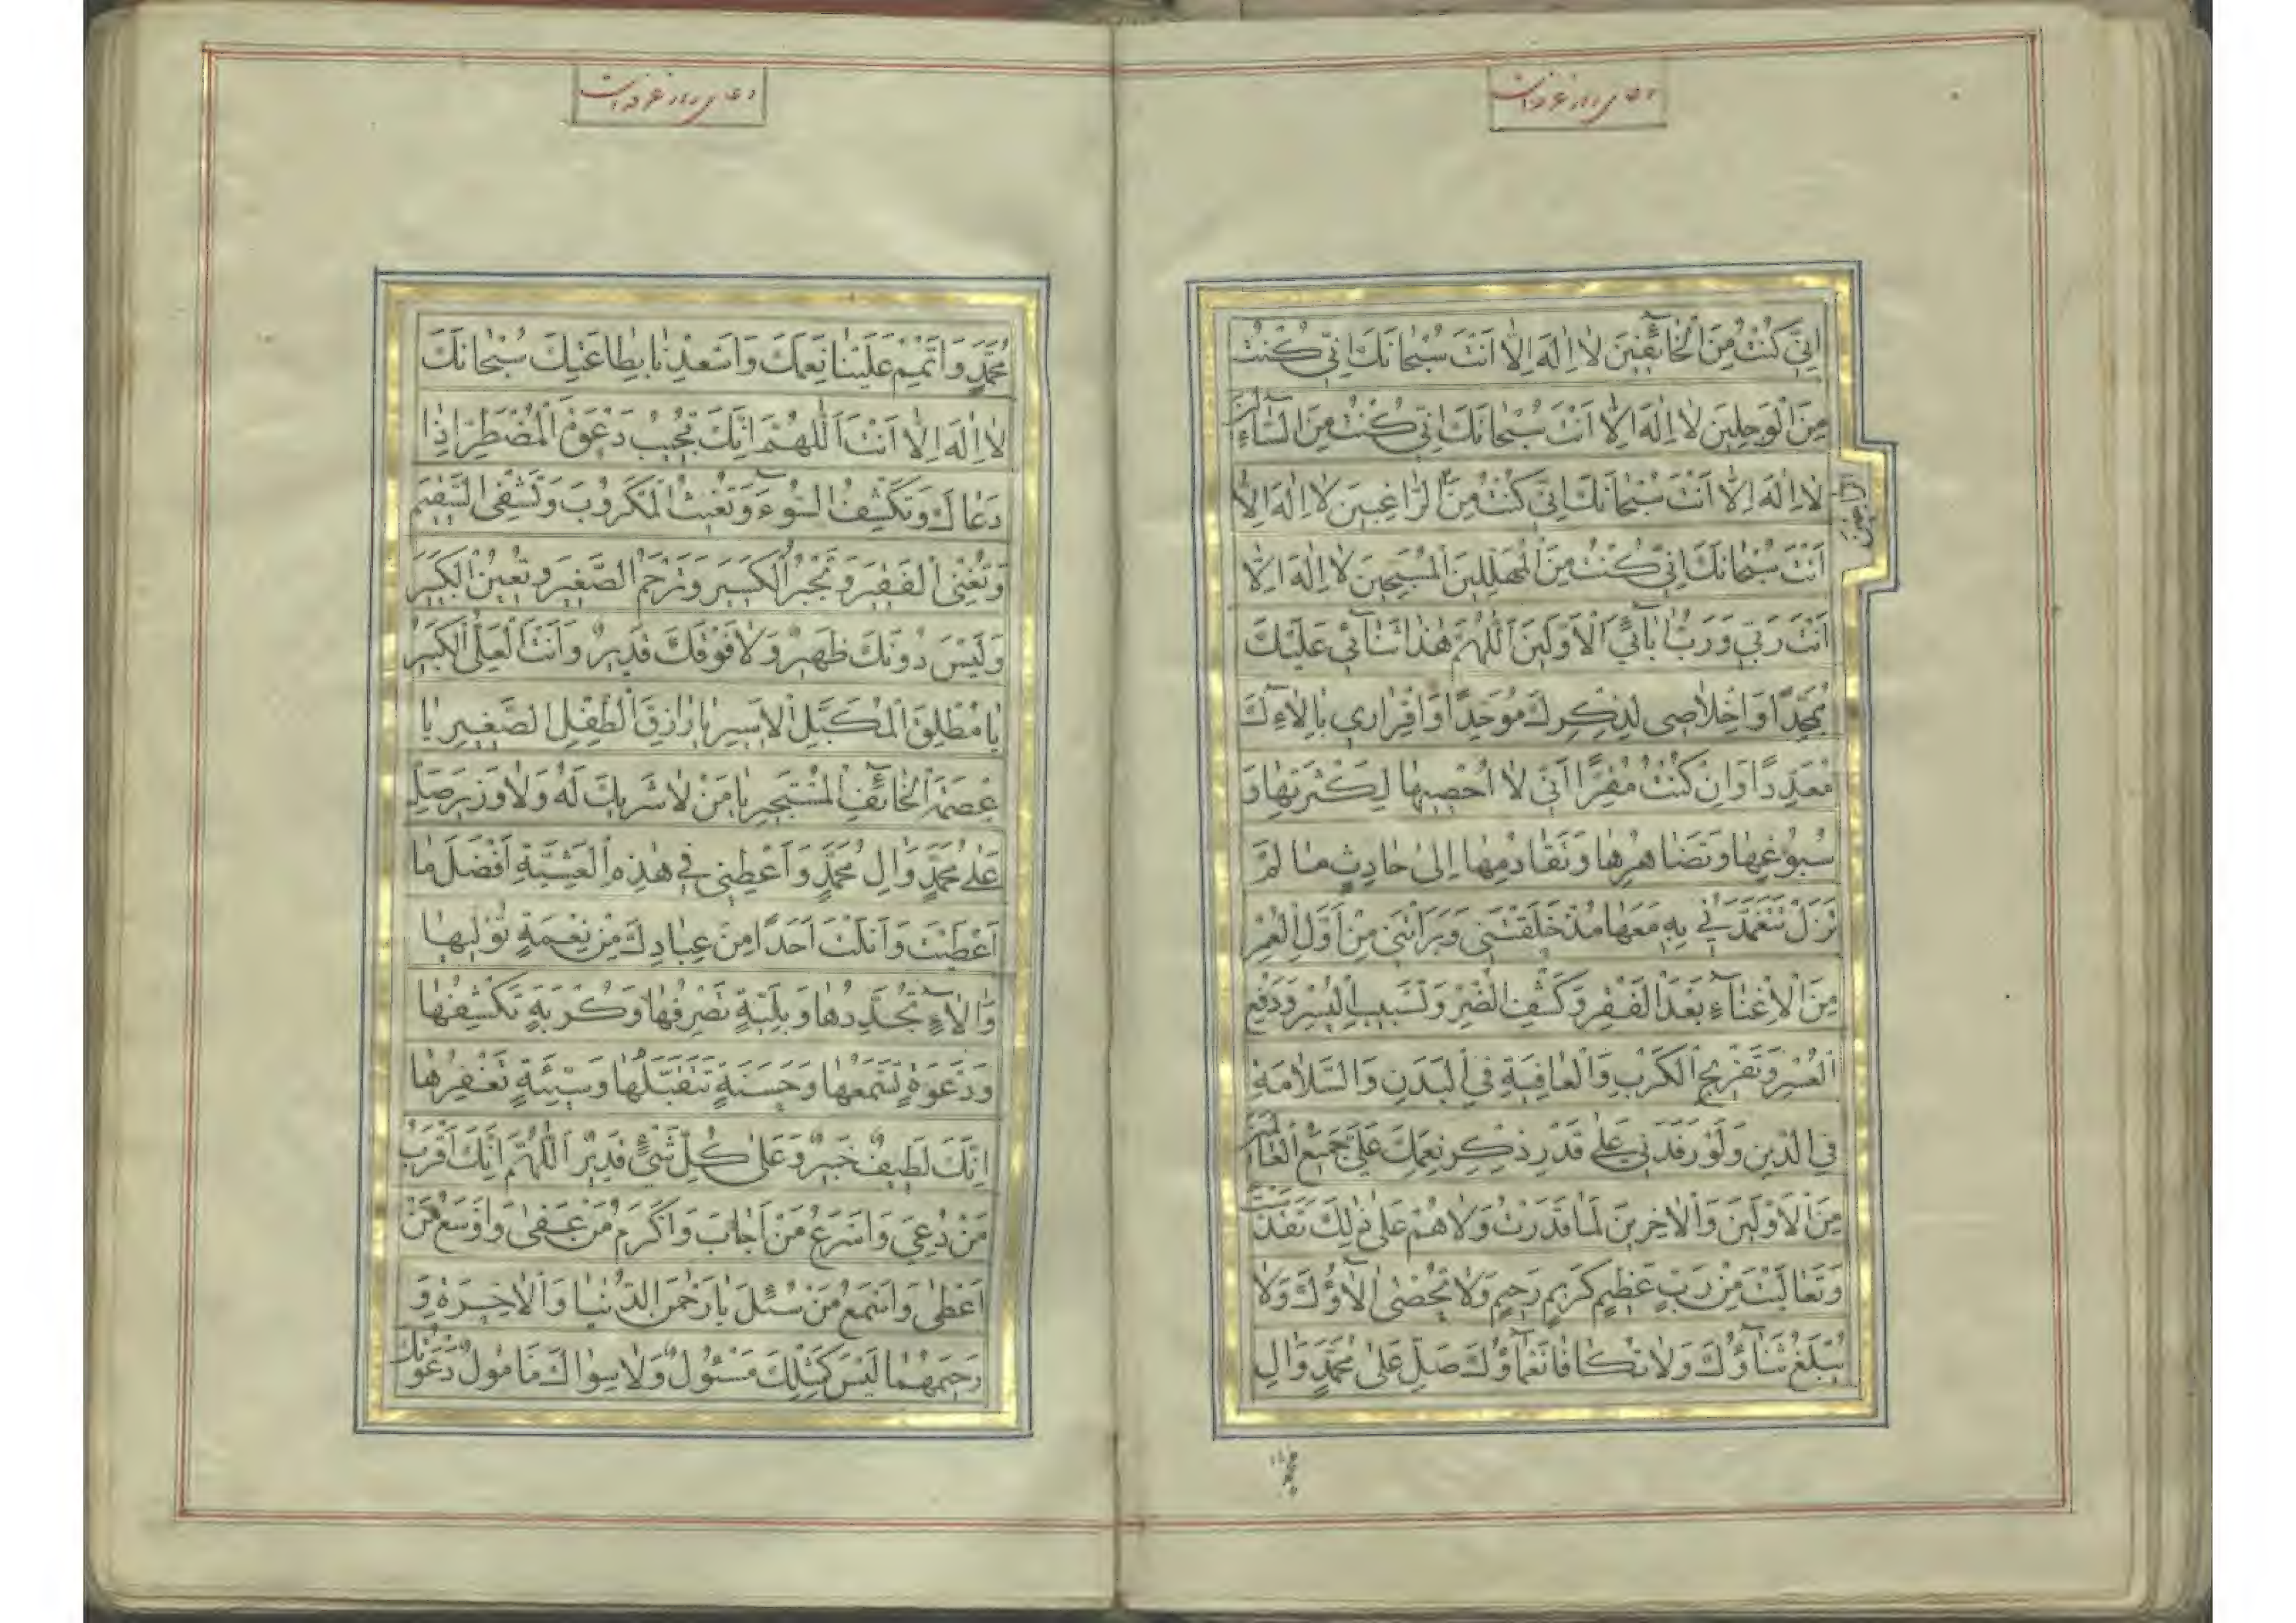 دعای روز عرفه است
اِنّی كُنْتُ مِنَ الْخآئِفینَ لا اِلهَ اِلّا اَنْتَ سُبْحانَكَ اِنّی كُنْتُ
مِنَ الْوَجِلینَ لا اِلهَ اِلّا اَنْتَ سُبْحانَكَ اِنّی كُنْتُ مِنَ السّآئِلینَ
لا اِلهَ اِلّا اَنْتَ سُبْحانَكَ اِنّی كُنْتُ مِنَ الرّاغِبینَ لا اِلهَ اِلّا
اَنْتَ سُبْحانَكَ اِنّی كُنْتُ مِنَ الْمُهَلِّلینَ الْمُسَبِّحینَ لا اِلهَ اِلّا
اَنْتَ رَبّی وَ رَبُّ ابآئِیَ الْاَوَّلینَ اَللّهُمَّ هذا ثَنائی عَلَیْكَ
مُمَجِّدًا وَ اِخْلاصی لِذِكْرِكَ مُوَحِّدًا وَ اِقْراری بِالآءِكَ
مُعَدِّدًا وَ اِنْ كُنْتُ مُقِرًّا اَنّی لا اُحْصیها لِكَثْرَتِها وَ
سُبُوغِها وَ تَضاهُرِها وَ تَقادُمِها اِلی حادِثٍ ما لَمْ
تَزَلْ تَتَغَمَّدُنی بِهِ مَعَها مُذْ خَلَقْتَنی وَ بَرَاْتَنی مِنْ اَوَّلِ الْعُمْرِ
مِنَ الْاِغْنآءِ بَعْدَ الْفَقْرِ وَ كَشْفِ الضُّرِّ وَ تَسْبیبِ الْیُسْرِ وَ دَفْعِ
الْعُسْرِ وَ تَفْریجِ الْكَرْبِ وَ الْعافِیَةِ فِی الْبَدَنِ وَ السَّلامَةِ
فِی الدّینِ وَ لَوْ رَفَدَنی عَلی قَدْرِ ذِكْرِ نِعَمِكَ عَلَیَّ جَمیعُ الْعالَمینَ
مِنَ الْاَوَّلینَ وَ الْاخِرینَ لَما قَدَرْتُ وَ لا هُمْ عَلی ذلِكَ تَقَدَّسْتَ
وَ تَعالَیْتَ مِنْ رَبٍّ عَظیمٍ كَریمٍ رَحیمٍ وَ لا تُحْصی الآؤُكَ وَ لا
یُبْلَغُ ثَنآؤُكَ وَ لا تُكافا نَعْمآؤُكَ صَلِّ عَلی مُحَمَّدٍ وَ الِ
دعای روز عرفه است
مُحَمَّدٍ وَ اَتْمِمْ عَلَیْنا نِعَمَكَ وَ اَسْعِدْنا بِطاعَتِكَ سُبْحانَكَ
لا اِلهَ اِلّا اَنْتَ اَللّهُمَّ اِنَّكَ تُجیبُ دَعْوَةَ الْمُضْطَرِّ اِذا
دَعاكَ وَ تَكْشِفُ السُّوءَ وَ تُغیثُ الْمَكْرُوبَ وَ تَشْفِی السَّقیمَ
وَ تُغْنِی الْفَقیرَ وَ تَجْبُرُ الْكَسیرَ وَ تَرْحَمُ الصَّغیرَ وَ تُعینُ الْكَبیرَ
وَ لَیْسَ دُونَكَ ظَهیرٌ وَ لا فَوْقَكَ قَدیرٌ وَ اَنْتَ الْعَلِیُّ الْكَبیرُ
یا مُطْلِقَ الْمُكَبَّلِ الْاَسیرِ یا رازِقَ الطِّفْلِ الصَّغیرِ یا
عِصْمَةَ الْخآئِفِ الْمُسْتَجیرِ یا مَنْ لا شَریكَ لَهُ وَ لا وَزیرَ صَلِّ
عَلی مُحَمَّدٍ وَ الِ مُحَمَّدٍ وَ اَعْطِنی فی هذِهِ الْعَشِیَّةِ اَفْضَلَ ما
اَعْطَیْتَ وَ اَنَلْتَ اَحَدًا مِنْ عِبادِكَ مِنْ نِعْمَةٍ تُولیها
وَ الآءٍ تُجَدِّدُها وَ بَلِیَّةٍ تَصْرِفُها وَ كُرْبَةٍ تَكْشِفُها
وَ دَعْوَةٍ تَسْمَعُها وَ حَسَنَةٍ تَتَقَبَّلُها وَ سَیِّئَةٍ تَغْفِرُها
اِنَّكَ لَطیفٌ خَبیرٌ وَ عَلی كُلِّ شَیْءٍ قَدیرٌ اَللّهُمَّ اِنَّكَ اَقْرَبُ
مَنْ دُعِیَ وَ اَسْرَعُ مَنْ اَجابَ وَ اَكْرَمُ مَنْ عَفی وَ اَوْسَعُ مَنْ
اَعْطی وَ اَسْمَعُ مَنْ سُئِلَ یا رَحْمنَ الدُّنْیا وَ الْاخِرَةِ وَ
رَحیمَهُما لَیْسَ كَمِثْلِكَ مَسْئُولٌ وَ لا سِواكَ مَامُولٌ دَعَوْتُكَ